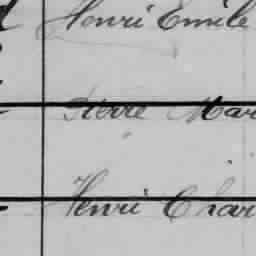 Henri Emile
Pierre Mar
Henri Char